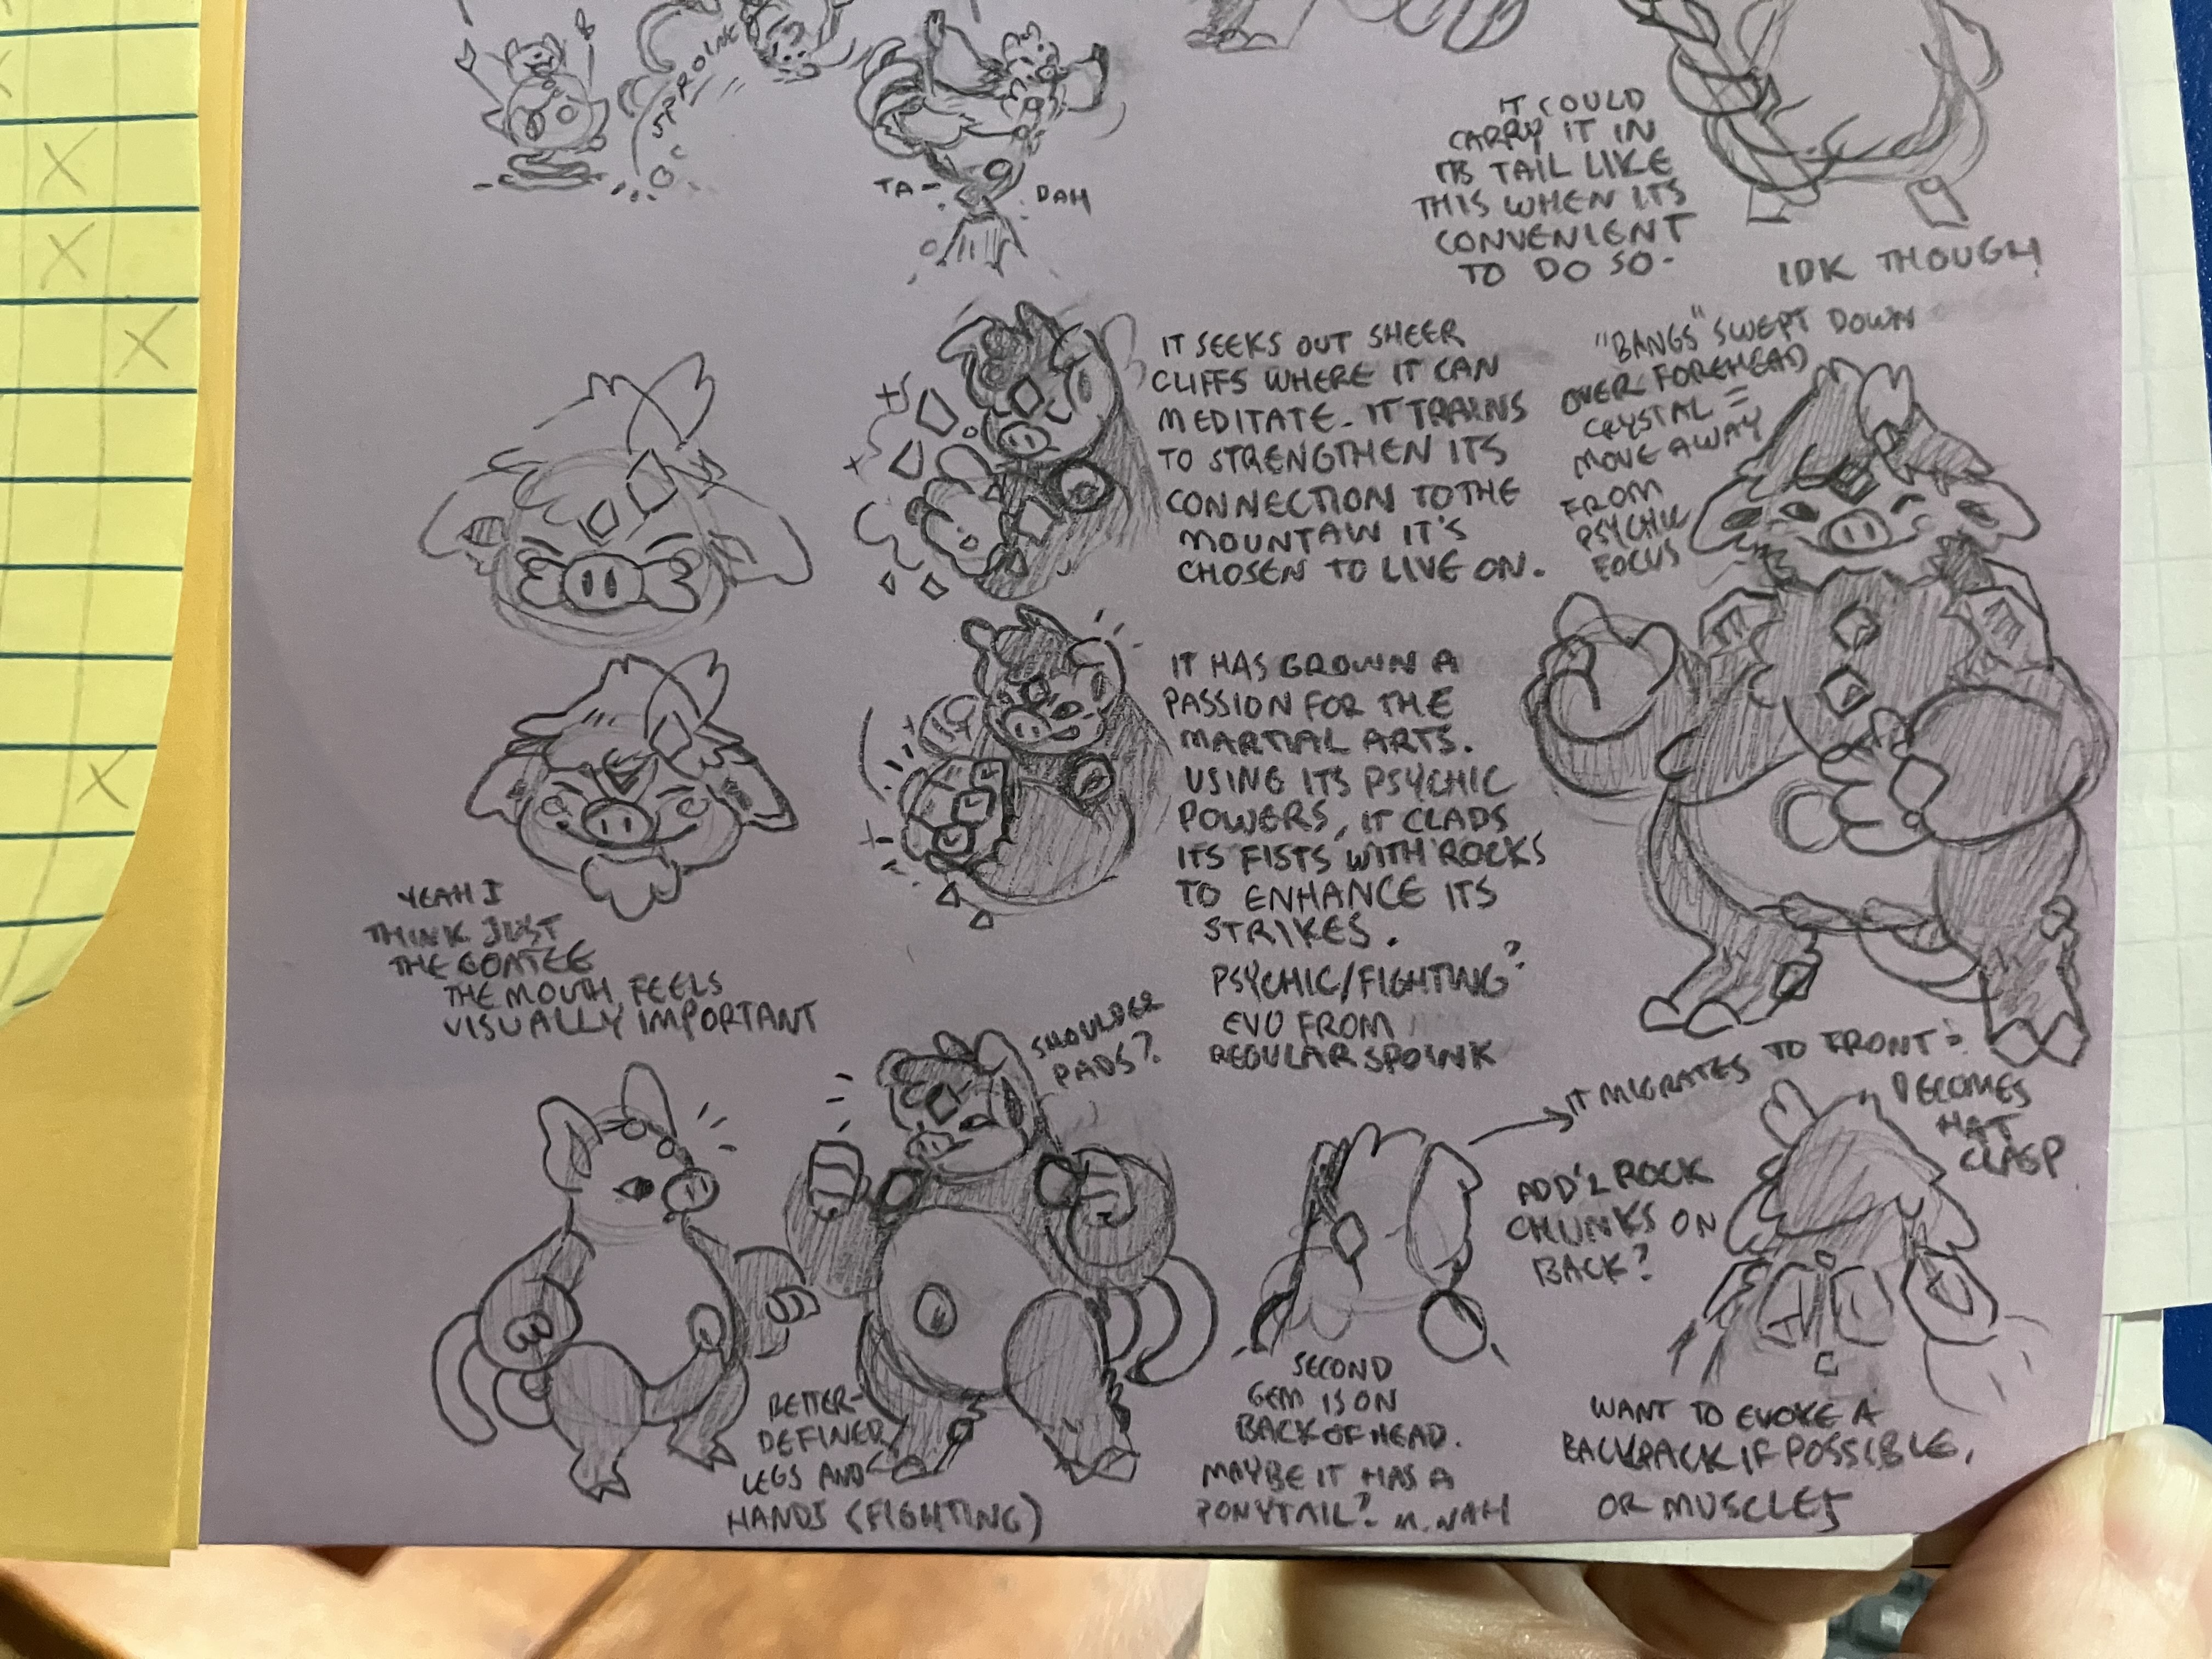 SPROINK
TA-
DAH
IT COULD
CARRY IT IN
ITS TAIL LIKE
THIS WHEN IT'S
CONVENIENT
TO DO SO-
IDK THOUGH
IT SEEKS OUT SHEER
CLIFFS WHERE IT CAN
MEDITATE. IT TRAINS
TO STRENGTHEN ITS
CONNECTION TO THE
MOUNTAIN IT'S
CHOSEN TO LIVE ON.
"BANGS" SWEPT DOWN
OVER FOREHEAD
CRYSTAL =
MOVE AWAY
FROM
PSYCHIC
FOCUS
IT HAS GROWN A
PASSION FOR THE
MARTIAL ARTS.
USING ITS PSYCHIC
POWERS, IT CLADS
ITS FISTS WITH ROCKS
TO ENHANCE ITS
STRIKES.
PSYCHIC/FIGHTING?
EVO FROM
REGULAR SPOINK
YEAH I
THINK JUST
THE GOATEE
THE MOUTH FEELS
VISUALLY IMPORTANT
SHOULDER
PADS?
BETTER-
DEFINED
LEGS AND
HANDS (FIGHTING)
SECOND
GEM IS ON
BACK OF HEAD.
MAYBE IT HAS A
PONYTAIL? M. NAH
→ IT MIGRATES TO FRONT =
BECOMES
HAT
CLASP
ADD'L ROCK
CHUNKS ON
BACK?
WANT TO EVOKE A
BACKPACK IF POSSIBLE,
OR MUSCLES
X
X
X
X